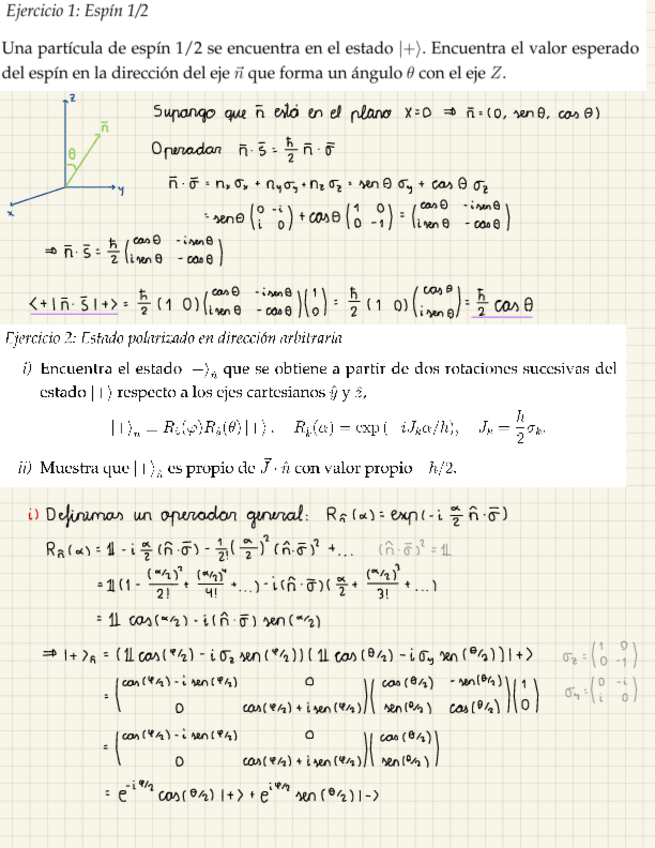 Ejercicio 1: Espín 1/2
Una partícula de espín 1/2 se encuentra en el estado |+⟩. Encuentra el valor esperado
del espín en la dirección del eje n⃗ que forma un ángulo θ con el eje Z.
z
n̄
θ
y
x
Supongo que n̄ está en el plano x=0 ⇒ n̄=(0, senθ, cosθ)
Operador n̄·s̄ = ħ/2 n̄·σ̄
n̄·σ̄ = nₓσₓ + n_yσ_y + n_zσ_z = senθ σ_y + cosθ σ_z
= senθ (0 -i; i 0) + cosθ (1 0; 0 -1) = (cosθ -i senθ; i senθ -cosθ)
⇒ n̄·s̄ = ħ/2 (cosθ -i senθ; i senθ -cosθ)
⟨+|n̄·s̄|+⟩ = ħ/2 (1 0)(cosθ -i senθ; i senθ -cosθ)(1; 0) = ħ/2 (1 0)(cosθ; i senθ) = ħ/2 cosθ
Ejercicio 2: Estado polarizado en dirección arbitraria
i) Encuentra el estado —⟩ₙ̂ que se obtiene a partir de dos rotaciones sucesivas del
estado |+⟩ respecto a los ejes cartesianos ŷ y ẑ,
|+⟩ₙ = R_ẑ(φ)R_ŷ(θ)|+⟩. R_k̂(α) = exp( iJ_kα/ħ), J_k = ħ/2 σ_k.
ii) Muestra que |+⟩ₙ̂ es propio de J⃗·n̂ con valor propio ħ/2.
i) Definimos un operador general: R_n̂(α) = exp(-i α/2 n̂·σ̄)
R_n̂(α) = 𝟙 - i α/2 (n̂·σ̄) - 1/2! (α/2)² (n̂·σ̄)² + ... (n̂·σ̄)² = 𝟙
= 𝟙(1 - (α/2)²/2! + (α/2)⁴/4! + ...) - i(n̂·σ̄)(α/2 + (α/2)³/3! + ...)
= 𝟙 cos(α/2) - i(n̂·σ̄) sen(α/2)
⇒ |+⟩ₙ̂ = (𝟙 cos(φ/2) - iσ_z sen(φ/2))(𝟙 cos(θ/2) - iσ_y sen(θ/2))|+⟩ σ_z = (1 0; 0 -1)
= (cos(φ/2) - i sen(φ/2) 0; 0 cos(φ/2) + i sen(φ/2))(cos(θ/2) -sen(θ/2); sen(θ/2) cos(θ/2))(1; 0) σ_y = (0 -i; i 0)
= (cos(φ/2) - i sen(φ/2) 0; 0 cos(φ/2) + i sen(φ/2))(cos(θ/2); sen(θ/2))
= e^(-iφ/2) cos(θ/2)|+⟩ + e^(iφ/2) sen(θ/2)|-⟩